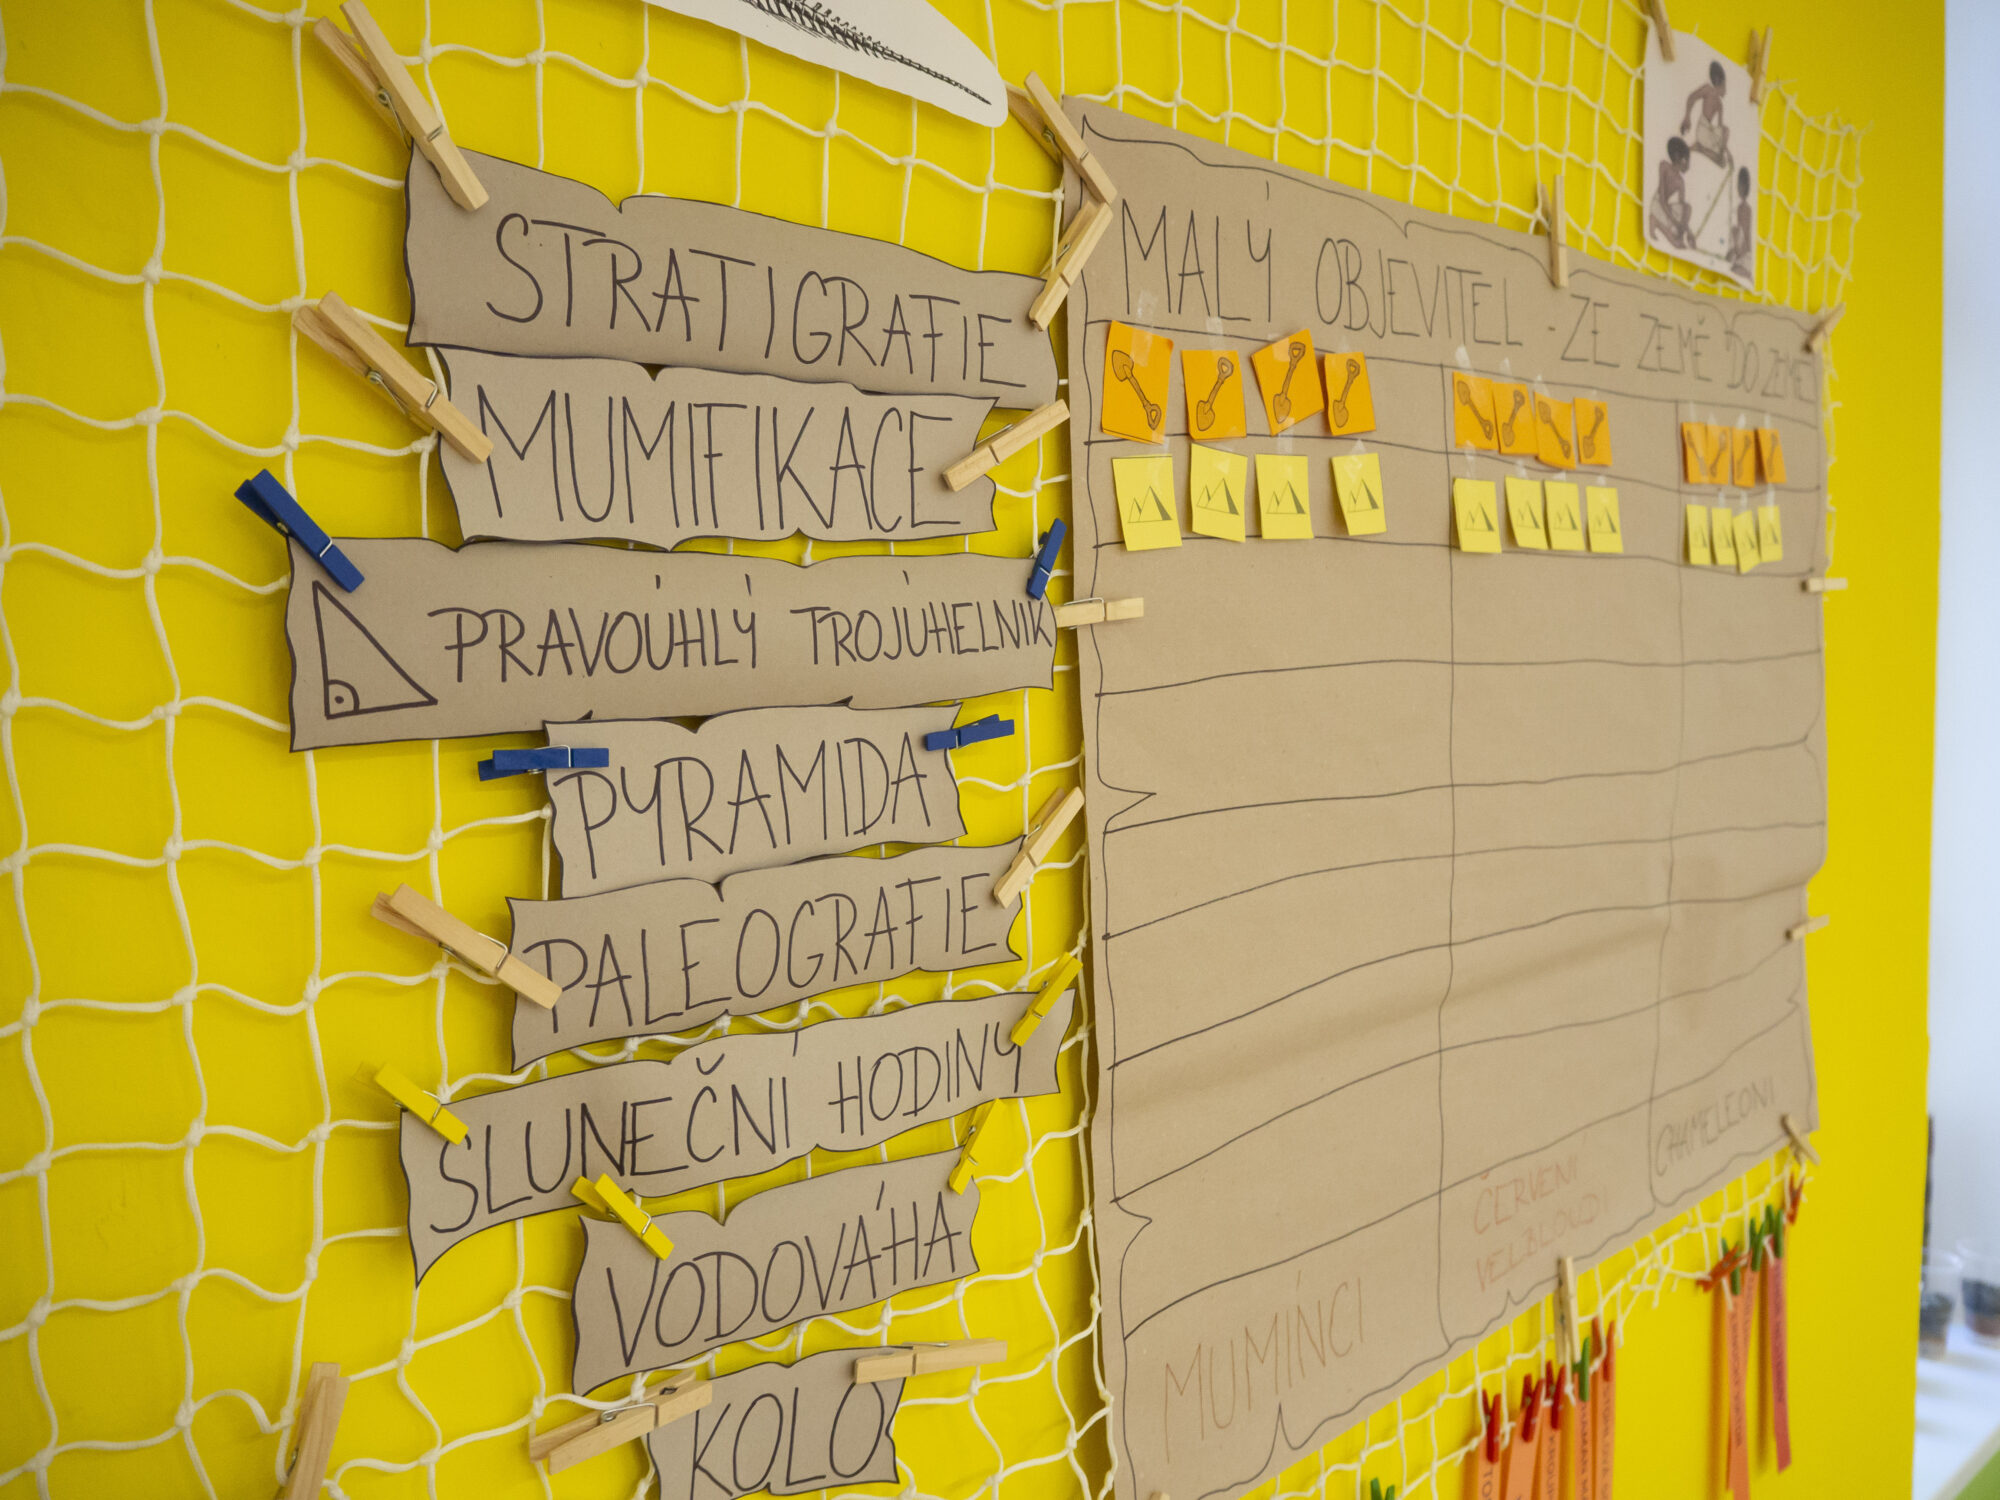 STRATIGRAFIE
MUMIFIKACE
PRAVOÚHLÝ TROJÚHELNÍK
PYRAMIDA
PALEOGRAFIE
SLUNEČNÍ HODINY
VODOVÁHA
KOLO
MALÝ OBJEVITEL - ZE ZEMĚ DO ZEMĚ
MUMÍNCI
ČERVENÍ
VELBLOUDI
CHAMELEONI